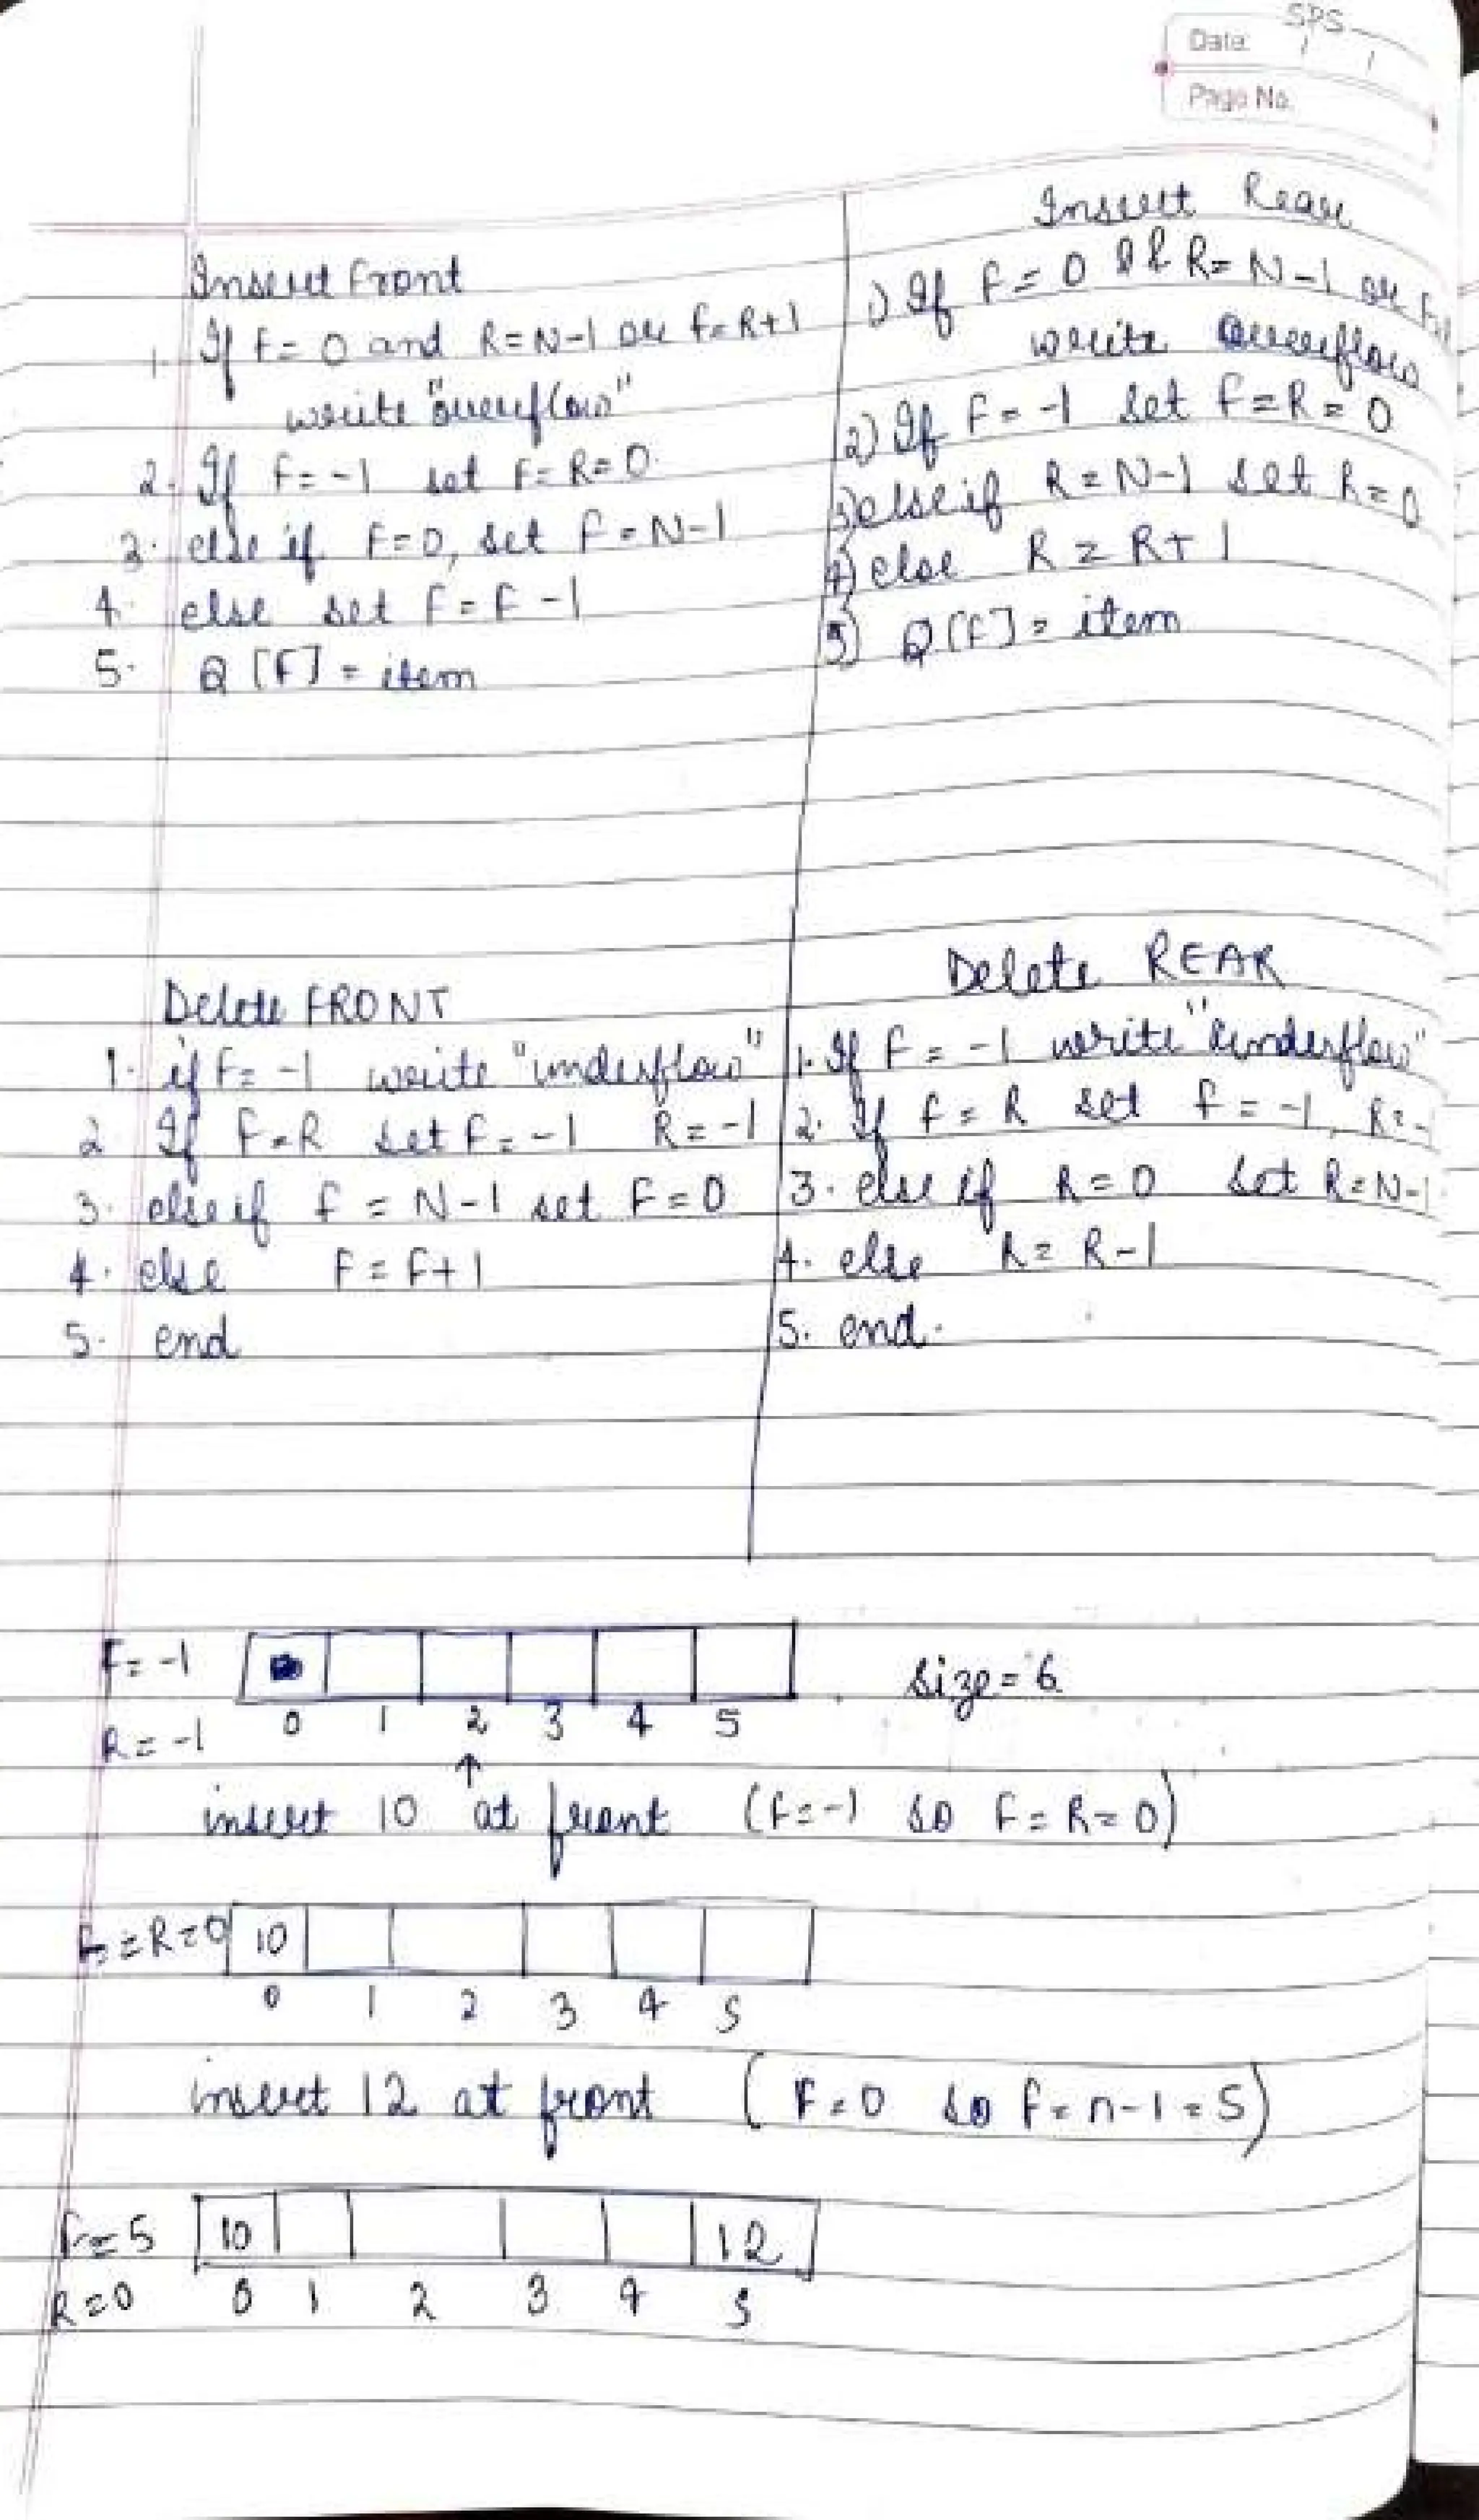 SPS
Date / /
Page No.
Insert Front
1. If F = 0 and R = N-1 or F = R+1
write "overflow"
2. If F = -1 set F = R = 0.
3. else if F = 0, set F = N-1
4. else set F = F - 1
5. Q [F] = item
Insert Rear
1) If F = 0 && R = N-1 or
write overflow
2) If F = -1 set F = R = 0
3) else if R = N-1 set R = 0
4) else R = R + 1
5) Q [F] = item
Delete FRONT
1. if F = -1 write "underflow"
2. If F = R set F = -1 R = -1
3. else if F = N-1 set F = 0
4. else F = F+1
5. end
Delete REAR
1. If F = -1 write "underflow"
2. If F = R set F = -1, R = -
3. else if R = 0 set R = N-1
4. else R = R-1
5. end.
F = -1
size = 6
R = -1 0 1 2 3 4 5
↑
insert 10 at front (F = -1 so F = R = 0)
F = R = 0 10
0 1 2 3 4 5
insert 12 at front (F = 0 so F = n-1 = 5)
F = 5 10 12
R = 0 0 1 2 3 4 5